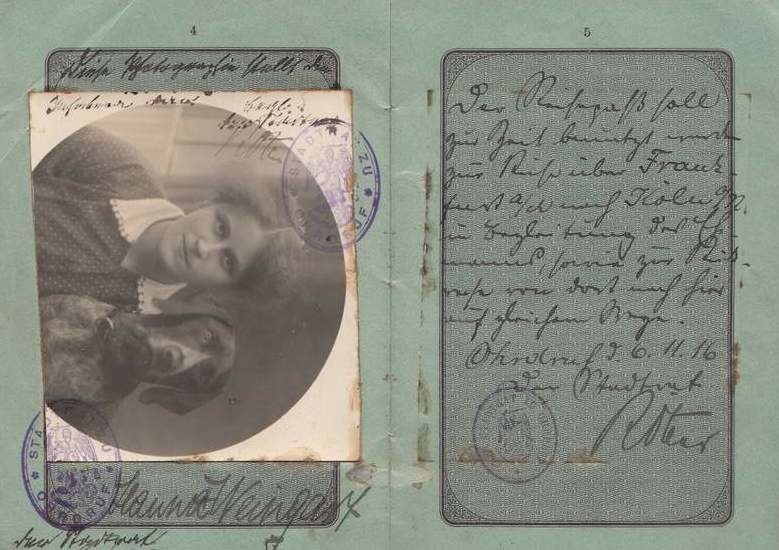 4
Diese Photographie stellt die
Inhaberin
Hanna Weingart
der Stadtrat
5
Der Reisepaß soll
zur Zeit benutzt werden
zur Reise über Frank-
furt a/M nach Köln a/Rh.
in Begleitung des Ehe-
manns, sowie zur Rück-
reise von dort nach hier
auf gleichem Wege.
Ohrdruf d. 6. 11. 16
Der Stadtrat